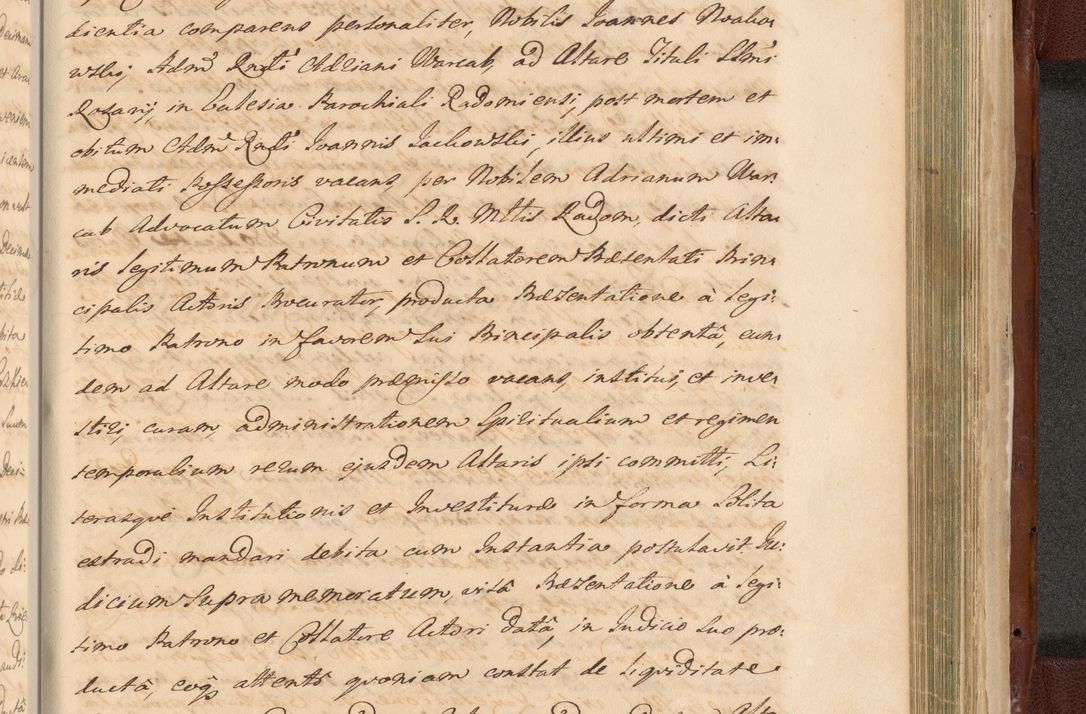 dientia comparens personaliter, Nobilis Joannes Noako
wskij Admᵒ Rndi Adriani Warcab, ad Altare Tituli SSmi
Rosarij, in Ecclesia Parochiali Radomiensi, post mortem et
obitum Adm Rndi Joannis Jachowskij, illius ultimi et im:
mediati Possessoris vacans, per Nobilem Adrianum War:
cab Advocatum Civitatis S. R. Mttis Radom, dicti Alta:
ris legitimum Patronum et Collatorem Præsentati Prin:
cipalis Actoris Procurator, producta Præsentatione à legi:
timo Patrono in favorem Sui Principalis obtentâ, eun:
dem ad Altare modo præmisso vacans, institui, et inve:
stiri, curam, administrationem Spiritualium et regimen
temporalium rerum ejusdem Altaris ipsi committi, Li:
terasque Institutionis et Investituræ in forma Solita
extradi mandari debita cum Instantia postulavit. Ju:
dicium Supra memoratum, visâ Præsentatione à legi:
timo Patrono et Collatore Actori datâ, in Judicio Suo pro:
ductâ, eoq attento quoniam constat de liquiditate